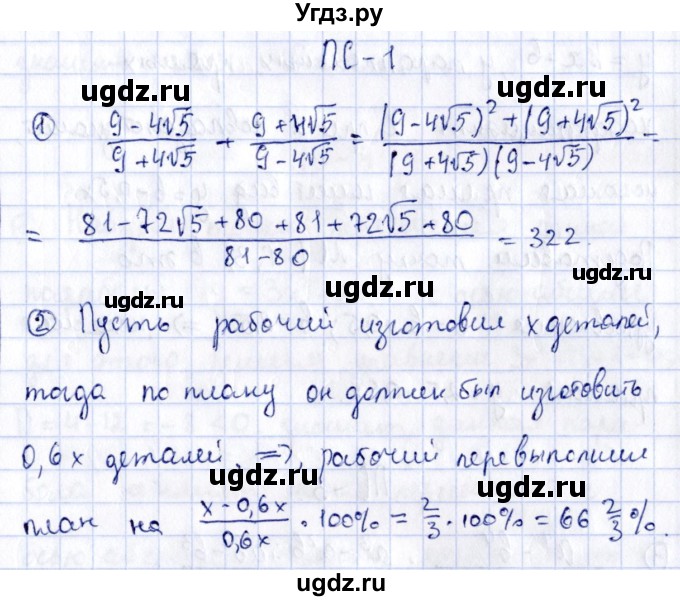 Угдз.ру
ПС-1
ugdz.ru ugdz.ru
① (9-4√5)/(9+4√5) + (9+4√5)/(9-4√5) = ((9-4√5)² + (9+4√5)²)/((9+4√5)(9-4√5)) =
= (81-72√5+80+81+72√5+80)/(81-80) = 322.
ugdz.ru ugdz.ru ugdz.ru
② Пусть рабочий изготовил x деталей,
тогда по плану он должен был изготовить
0,6x деталей ⇒, рабочий перевыполнил
ugdz.ru ugdz.ru
план на (x-0,6x)/(0,6x) · 100% = 2/3 · 100% = 66 2/3 %.
ugdz.ru